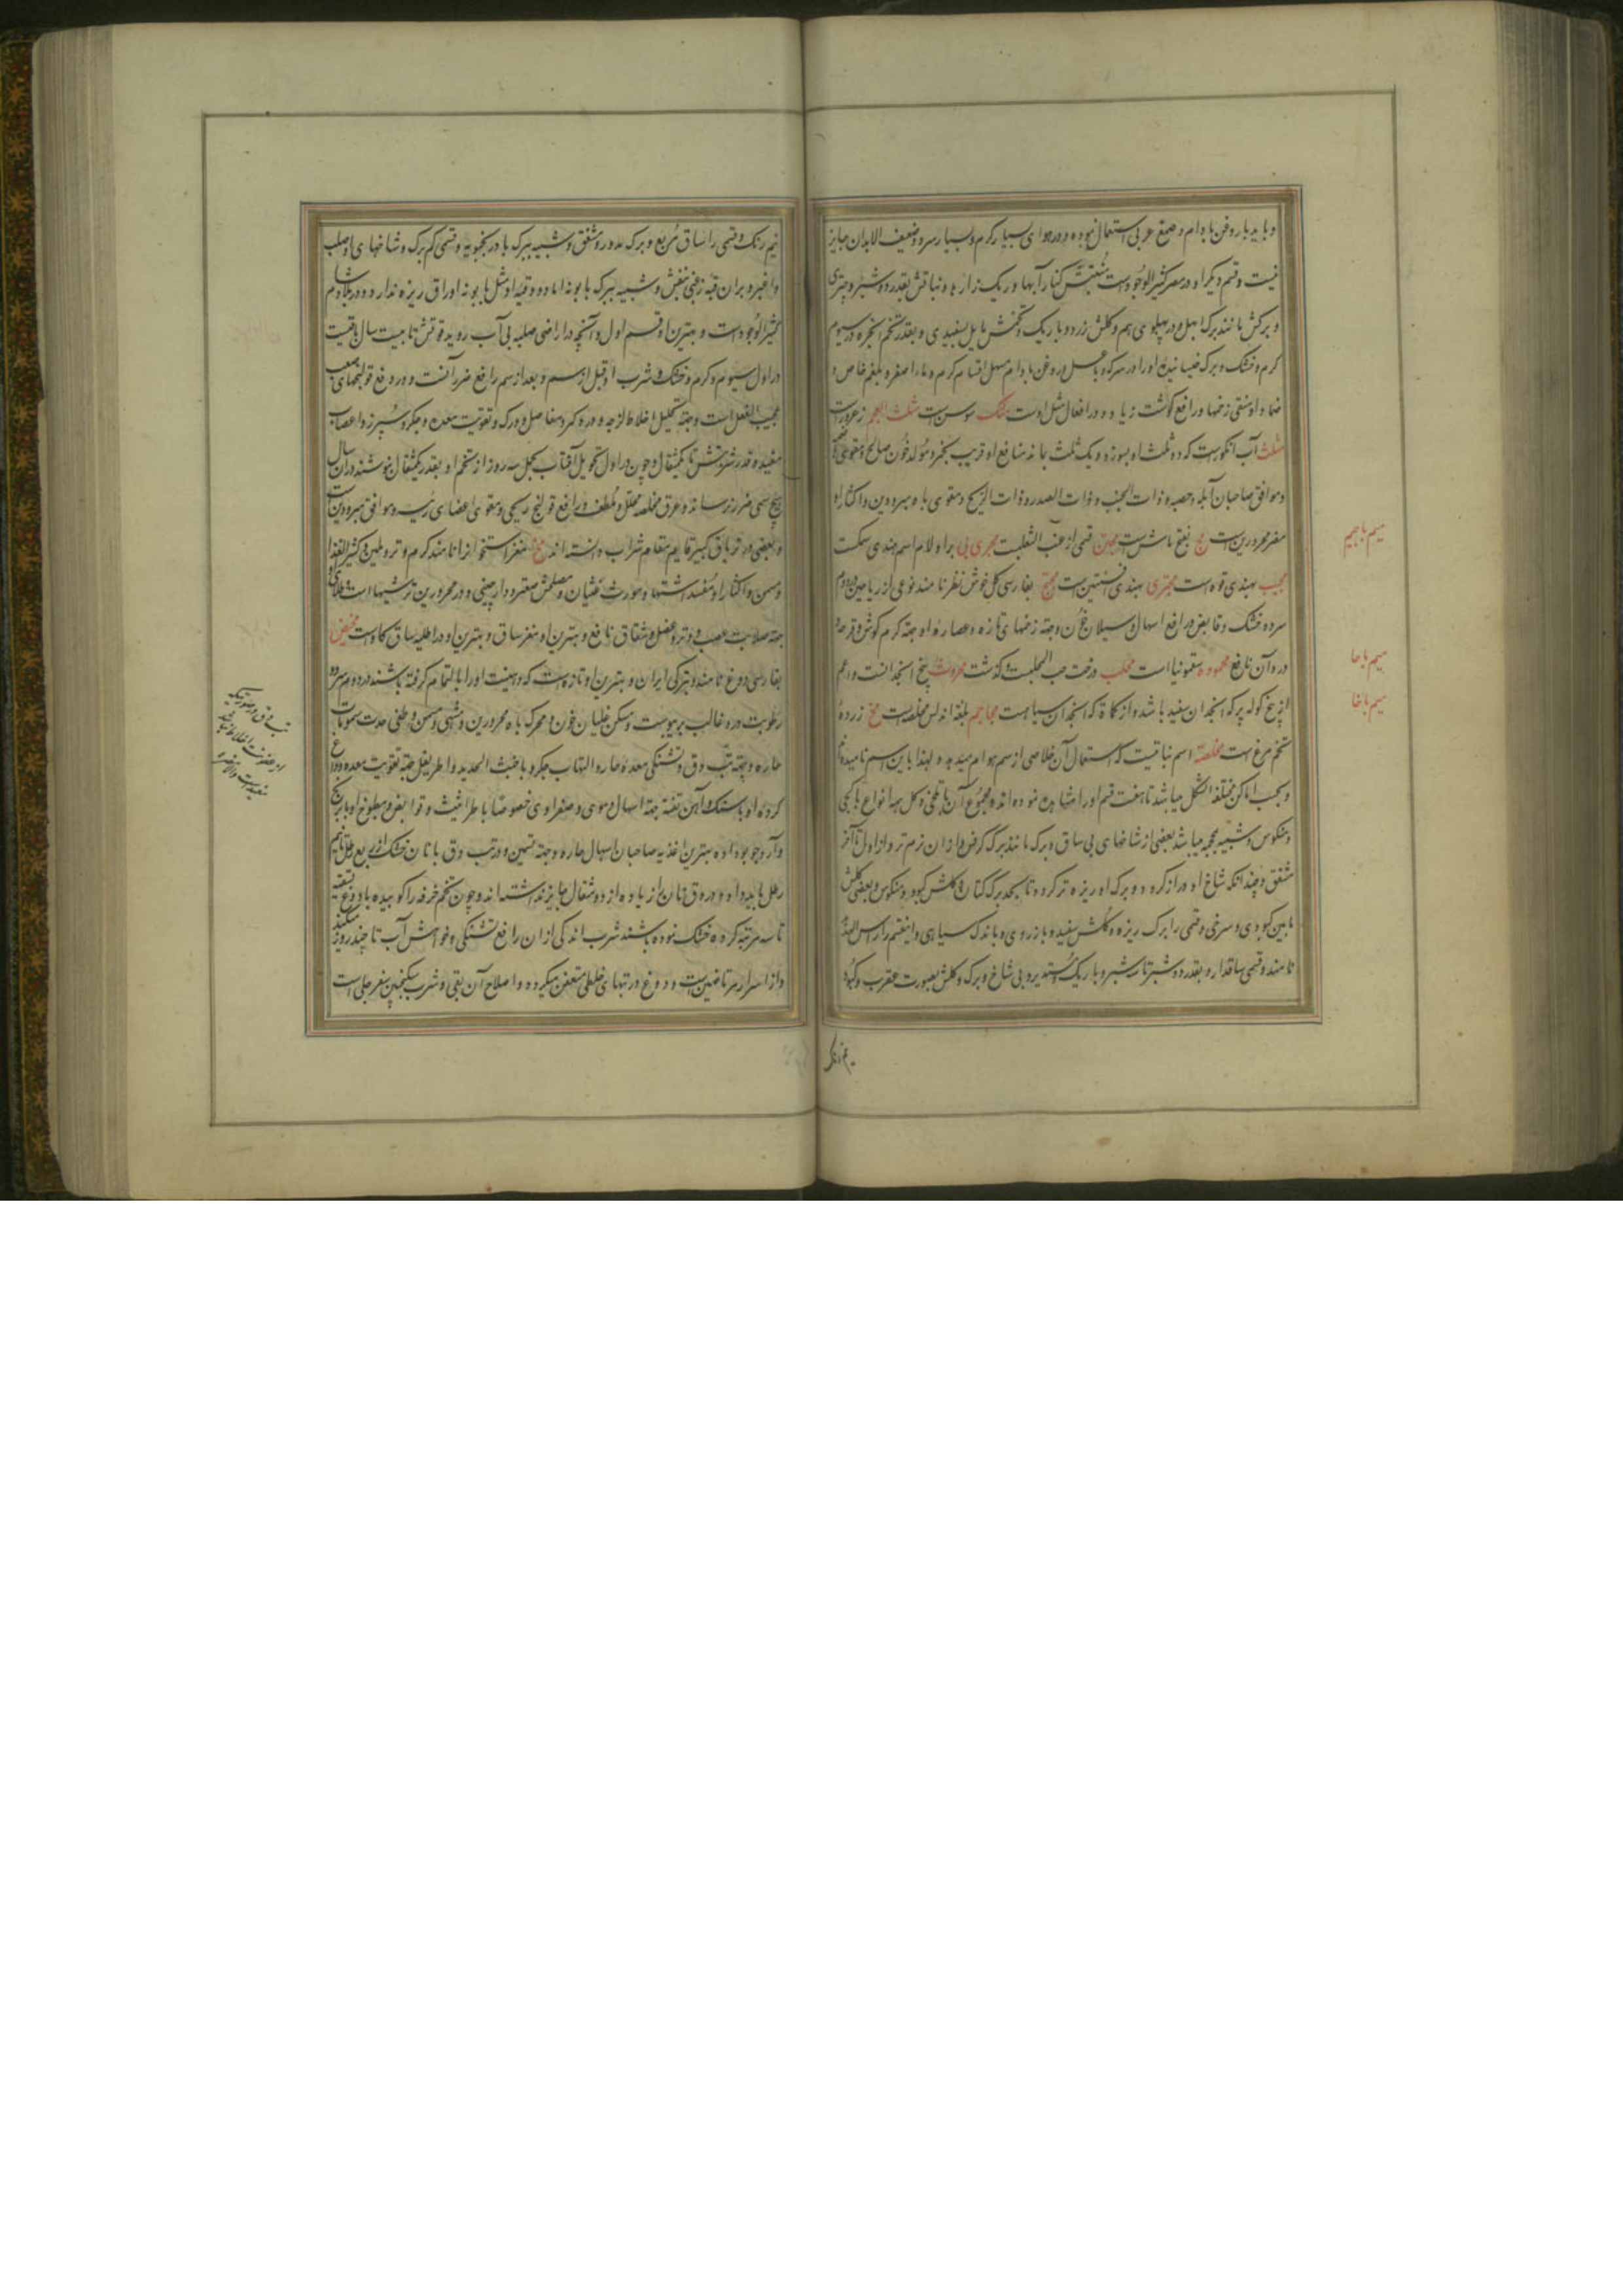 و باید با روغن بادام و صمغ عربی استعمال نموده و در هوای بسیار گرم و بسیار سرد و ضعیف الابدان جایز
نیست و قسم دیگر او در مصر کثیر الوجود است منبتش کنار آبها و ریک زار و نباتش بقدر دو شبر و چتری
و برکش مانند برک ابهل و در پهلوی هم و کلش زرد و باریک و تخمش مایل بسفیدی و بقدر تخم انجره در سیوم
کرم و خشک و برک خیسانیده او را در سرکه و با عسل و روغن بادام مسهل اقسام کرم و ماء اصفر و بلغم خاص و
ضماد او منقی زخمها و رافع کوشت زیاد و در افعال مثل اوست مثلک سوسن است مثلث العجم زعرور است
مثلث آب انکور است که دو ثلث او بسوزد و یک ثلث بماند منافع او قریب بخمر و مولد خون صالح و مقوی
و موافق صاحبان آبله و حصبه و ذات الجنب و ذات الصدر و ذات الریه و مقوی باه مبرودین و اکثار او
مضر محرورین است مج بفتح ماش است مجنن قسمی از عنب الثعلبست مجری بی برا و لام اسم هندی سکست
مجیب بهندی فوه است مجتری بهندی افسنتین است مجج بفارسی کل خوش نظر نامند نوعی از ریاحین در دوم
سرد و خشک و قابض و رافع اسهال و سیلان خون و جهة زخمهای تازه و عصاره او جهة کرم کوش و قرحه و
درد آن نافع محموده سقمونیا است محلب درخت حب المحلبست و کذشت محروث بیخ انجدانست و اعم
از بیخ کوله پر که انجدان سفید باشد و از کماة که انجدان سیاهست محاجم بلغة اندلس مخلصه است مخ زرده
تخم مرغ است مخلصة اسم نباتیست که استعمال آن خلاصی از سم هوام میدهد و لهذا باین اسم نامیده اند
و بحسب اماکن مختلفه الشکل میباشد تا هفت قسم او را مشاهده نموده اند و مجموع آن با تلخی و کل همه انواع با کجی
و منکوس و شبیه بمجمر میباشد بعضی از شاخهای بی ساق و برک مانند برک کرفس و از آن نرم تر و از اول تا آخر
مشقق و چندانکه شاخ او دراز کردد و برک او ریزه تر کردد تا بحد برک کتان و کلش کبود و منکوس و بعضی کلش
مابین کبودی و سرخی و قسمی را برک ریزه و کلش سفید و با زردی و با اندک سیاهی و این قسم را راس الهدهد
نامند و قسمی ساقدار و بقدر دو شبر تا سه شبر و باریک و مستدیر و بی شاخ و برک و کلش بصورت عقرب و کبود
میم با جیم
میم با حا
میم با خا
نیم رنک و قسمی را ساق مربع و برک مدور و مشقق و شبیه ببرک بادرنجبویه و قسمی کم برک و شاخهای او صلب
و اغبر و بر آن قبه زغبی بنفش و شبیه ببرک بابونه اما دو و قبه او مثل بابونه اوراق ریزه ندارد و در بلاد شام
کثیر الوجود است و بهترین او قسم اول و آنچه در اراضی صلبه بی آب روید قوتش تا بیست سال باقیست
در اول سیوم کرم و خشک و شرب او قبل از سم و بعد از سم رافع ضرر آنست و در رفع قولنجهای صعب
عجیب الفعل است و جهة تحلیل اخلاط لزجه و درد کمر و مفاصل و ورک و تقویت معده و جکر و سپرز و اعصاب
مفید و قدر شربتش تا یکمثقال و چون در اول تحویل آفتاب بحمل سه روز از تخم او بقدر یکمثقال بنوشند در آن سال
هیچ سمی ضرر نرساند و عرق مخلصه محلل و ملطف و رافع قولنج ریحی و مقوی اعضای رئیسه و موافق مبرودین است
و بعضی در تریاق کبیر قایم مقام شراب دانسته اند مخ مغز استخوان نامند کرم و تر و ملین و کثیر الغذا
و مسمن و اکثار او مفسد اشتها و مورث غثیان و مصلحش صعتر و دارچینی و در محرورین ترشیها است و طلای
جهة صلابت عصب و وتر و عضل و شقاق نافع و بهترین او مغز ساق و بهترین او در اطلیه ساق کاو است مخیض
بفارسی دوغ نامند و بترکی ایران و بهترین او تازه است که دهنیت او را بالتمام کرفته باشند در دوم سرد و
رطوبت در و غالب بر یبوست و مسکن غلیان خون و محرک باه محرورین و مشهی و مسمن و مطفی حدت سمومات
حاره و جهة تب دق و تشنکی معده حاره و التهاب جکر و با خبث الحدید و اطریفل جهة تقویت معده و دوغ
کرده او با سنک و آهن تفته جهة اسهال دموی و صفراوی خصوصا با طراثیث و قوابض و مطبوخ او با برنج
و آرد جو بوداده بهترین اغذیه صاحبان اسهال حاره و جهة تسمین و در تب دق با نان خشک از ربع رطل تا نیم
رطل باید داد و در دق نان را زیاده از دو مثقال جایز نداشته اند و چون تخم خرفه را کوبیده با دوغ تفته
تا سه مرتبه کرده خشک نموده باشند شرب اندکی از آن رافع تشنکی و خواهش آب تا چند روز میکند
و از اسرار مرتاضین است و دوغ در تبهای خلطی متعفن میکردد و اصلاح آن بقی و شرب سکنجبین سفرجلی است